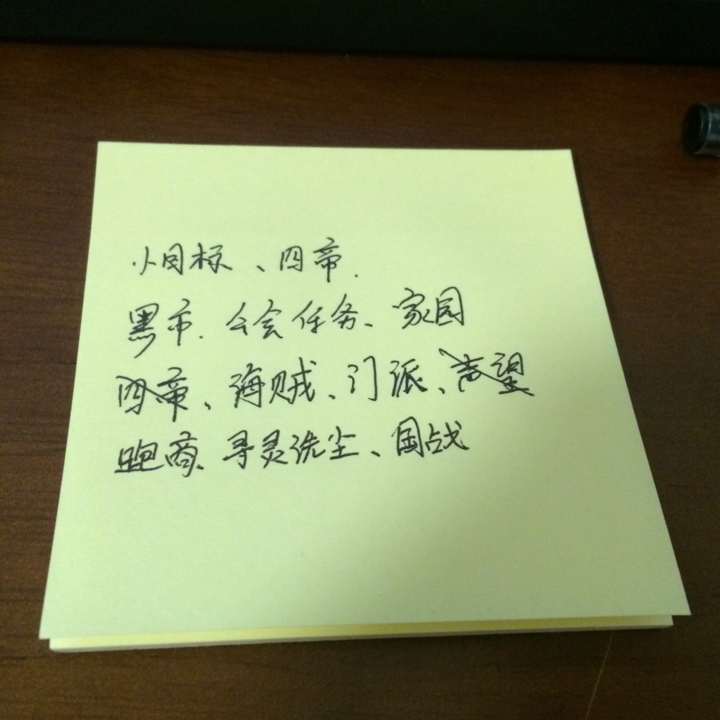 小目标、四帝.
黑市.公会任务、家园
四帝、海贼、门派、声望
跑商、寻灵洗尘、国战